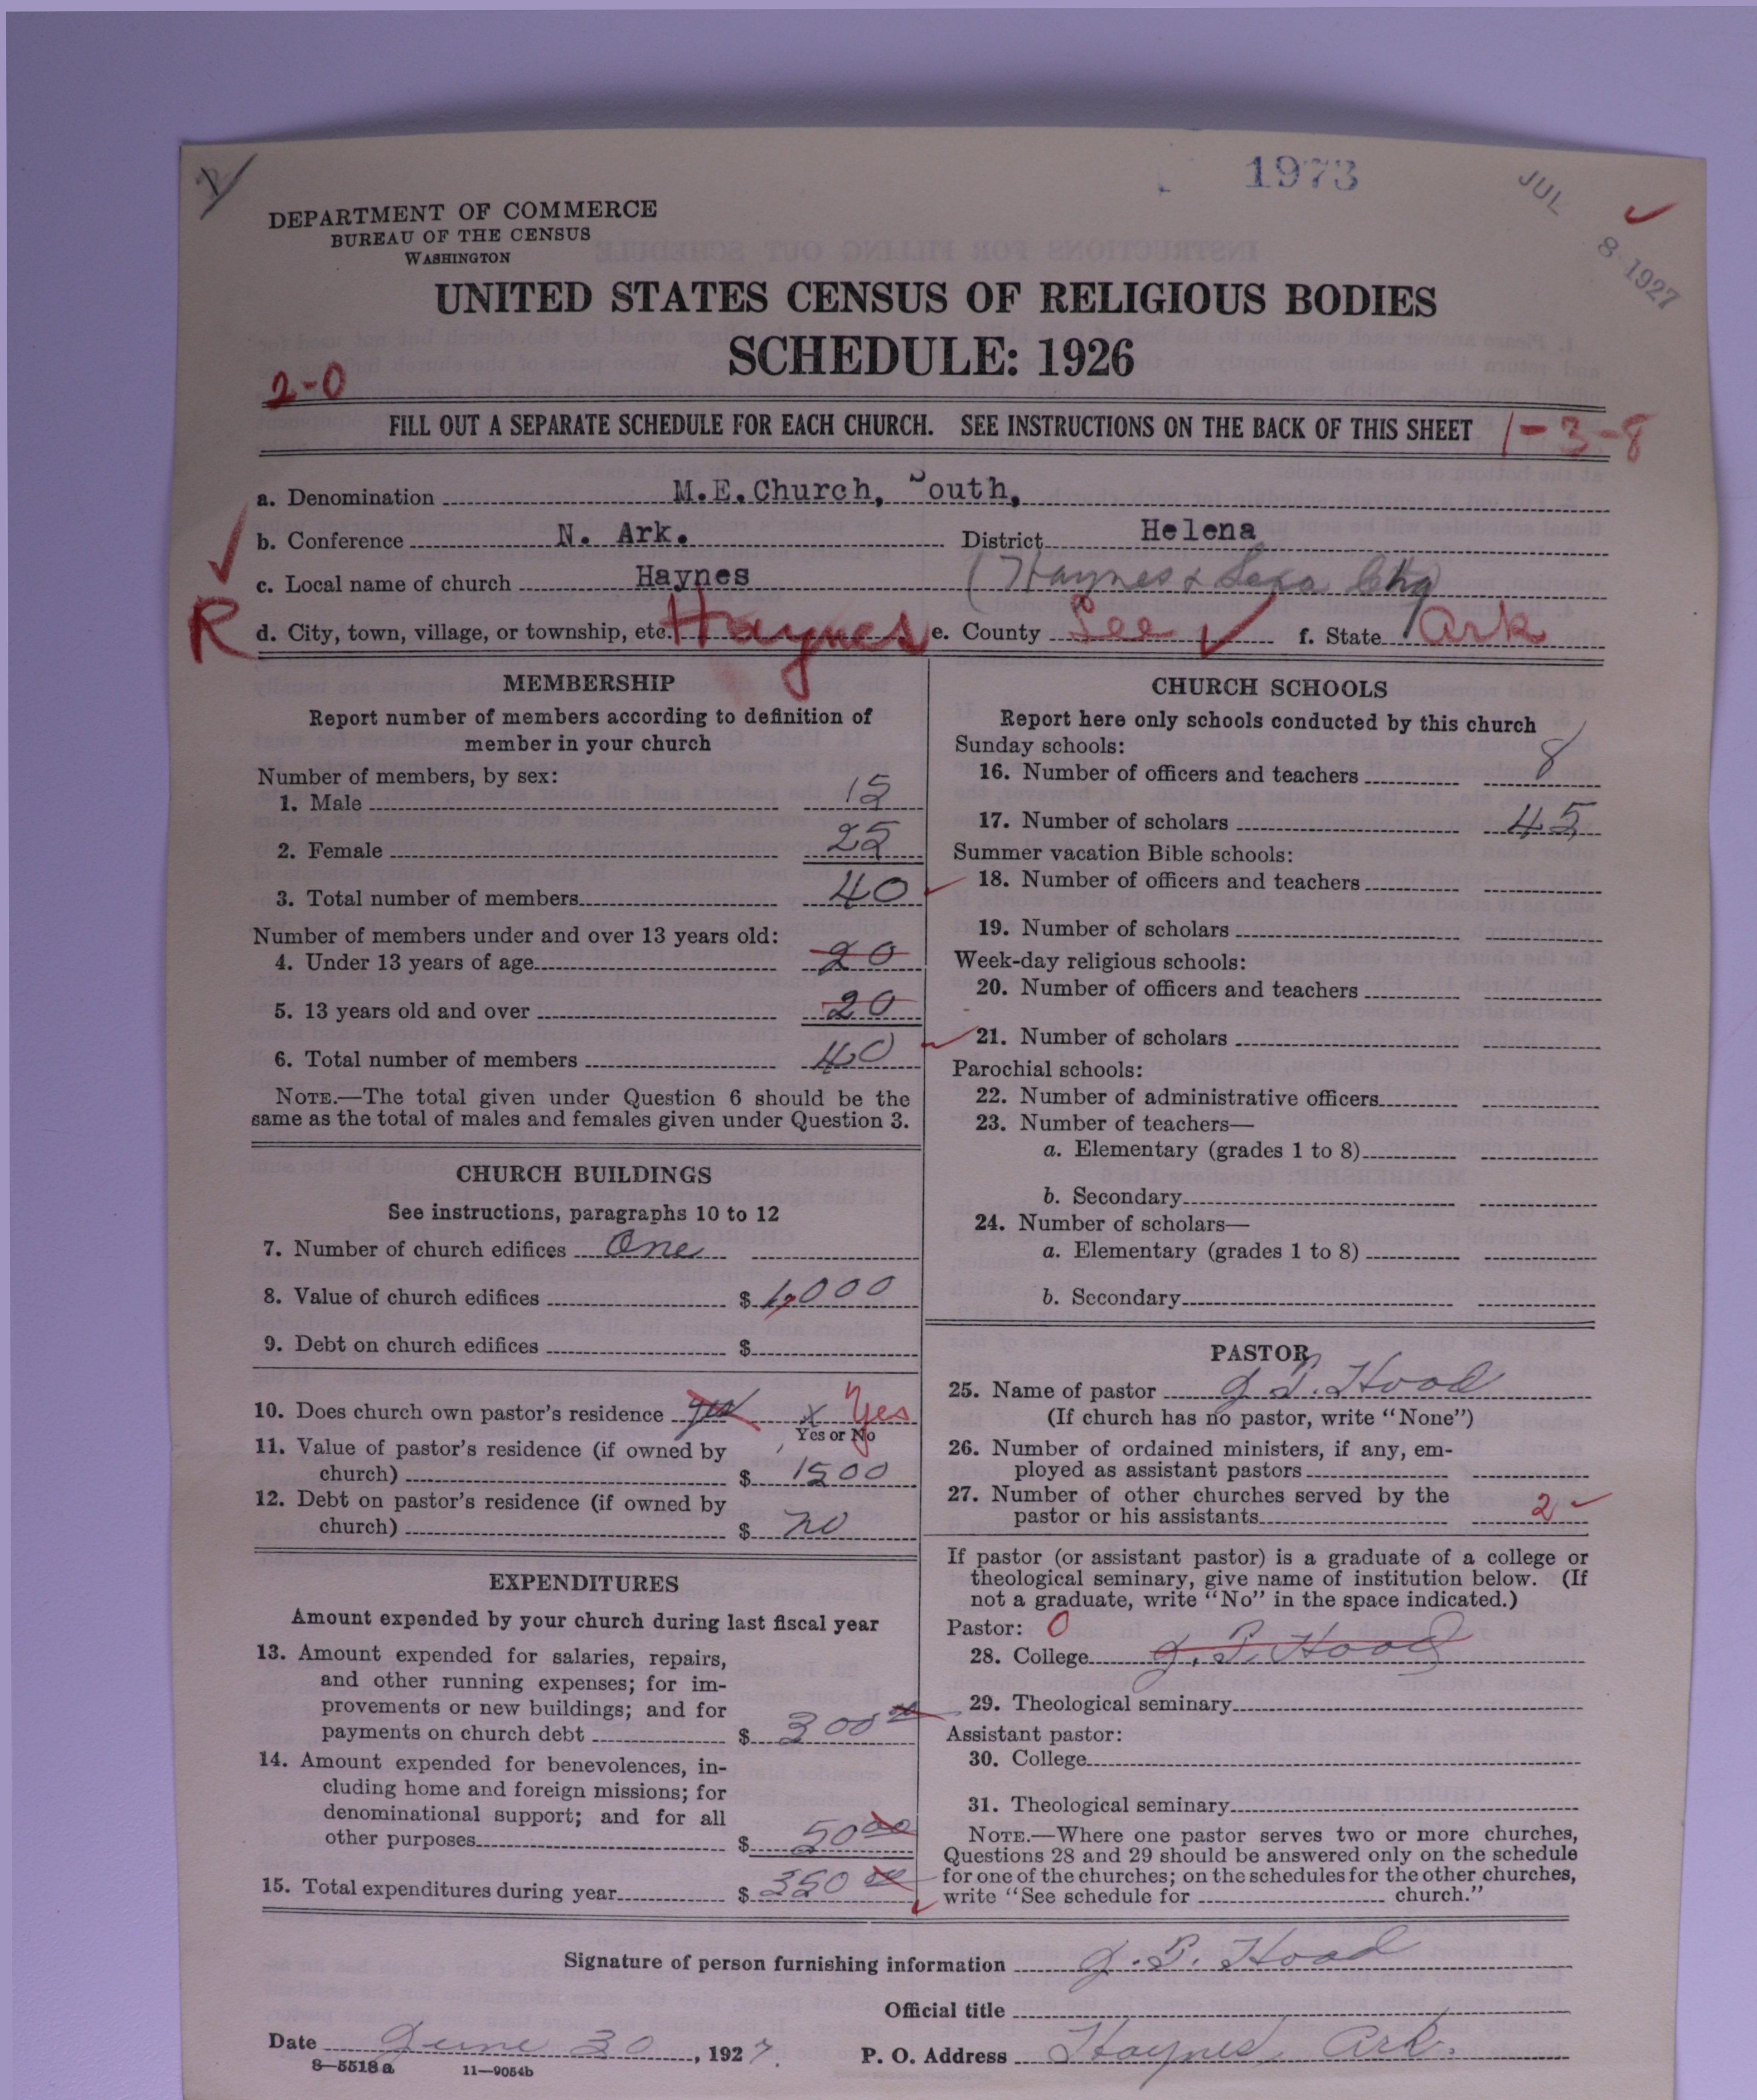 1973
JUL
8 1927
DEPARTMENT OF COMMERCE
BUREAU OF THE CENSUS
WASHINGTON
UNITED STATES CENSUS OF RELIGIOUS BODIES
SCHEDULE: 1926
2-0
FILL OUT A SEPARATE SCHEDULE FOR EACH CHURCH. SEE INSTRUCTIONS ON THE BACK OF THIS SHEET 1-3-8
a. Denomination M.E.Church, South,
b. Conference N. Ark. District Helena
c. Local name of church Haynes (Haynes & Lexa Chg)
R d. City, town, village, or township, etc. Haynes e. County Lee f. State Ark
MEMBERSHIP
Report number of members according to definition of
member in your church
Number of members, by sex:
1. Male 15
2. Female 25
3. Total number of members 40
Number of members under and over 13 years old:
4. Under 13 years of age 20
5. 13 years old and over 20
6. Total number of members 40
NOTE.—The total given under Question 6 should be the
same as the total of males and females given under Question 3.
CHURCH BUILDINGS
See instructions, paragraphs 10 to 12
7. Number of church edifices One
8. Value of church edifices $ 1,000
9. Debt on church edifices $
10. Does church own pastor's residence yes x Yes
Yes or No
11. Value of pastor's residence (if owned by
church) $ 1500
12. Debt on pastor's residence (if owned by
church) $ no
EXPENDITURES
Amount expended by your church during last fiscal year
13. Amount expended for salaries, repairs,
and other running expenses; for im-
provements or new buildings; and for
payments on church debt $ 300 00
14. Amount expended for benevolences, in-
cluding home and foreign missions; for
denominational support; and for all
other purposes $ 50 00
15. Total expenditures during year $ 350 00
CHURCH SCHOOLS
Report here only schools conducted by this church
Sunday schools:
16. Number of officers and teachers 8
17. Number of scholars 45
Summer vacation Bible schools:
18. Number of officers and teachers
19. Number of scholars
Week-day religious schools:
20. Number of officers and teachers
21. Number of scholars
Parochial schools:
22. Number of administrative officers
23. Number of teachers—
a. Elementary (grades 1 to 8)
b. Secondary
24. Number of scholars—
a. Elementary (grades 1 to 8)
b. Secondary
PASTOR
25. Name of pastor J. T. Hood
(If church has no pastor, write "None")
26. Number of ordained ministers, if any, em-
ployed as assistant pastors
27. Number of other churches served by the
pastor or his assistants 2
If pastor (or assistant pastor) is a graduate of a college or
theological seminary, give name of institution below. (If
not a graduate, write "No" in the space indicated.)
Pastor: 0
28. College J. T. Hood
29. Theological seminary
Assistant pastor:
30. College
31. Theological seminary
NOTE.—Where one pastor serves two or more churches,
Questions 28 and 29 should be answered only on the schedule
for one of the churches; on the schedules for the other churches,
write "See schedule for church."
Signature of person furnishing information J. T. Hood
Official title
Date June 30, 1927. P. O. Address Haynes, Ark.
8—5518 a 11—9054b